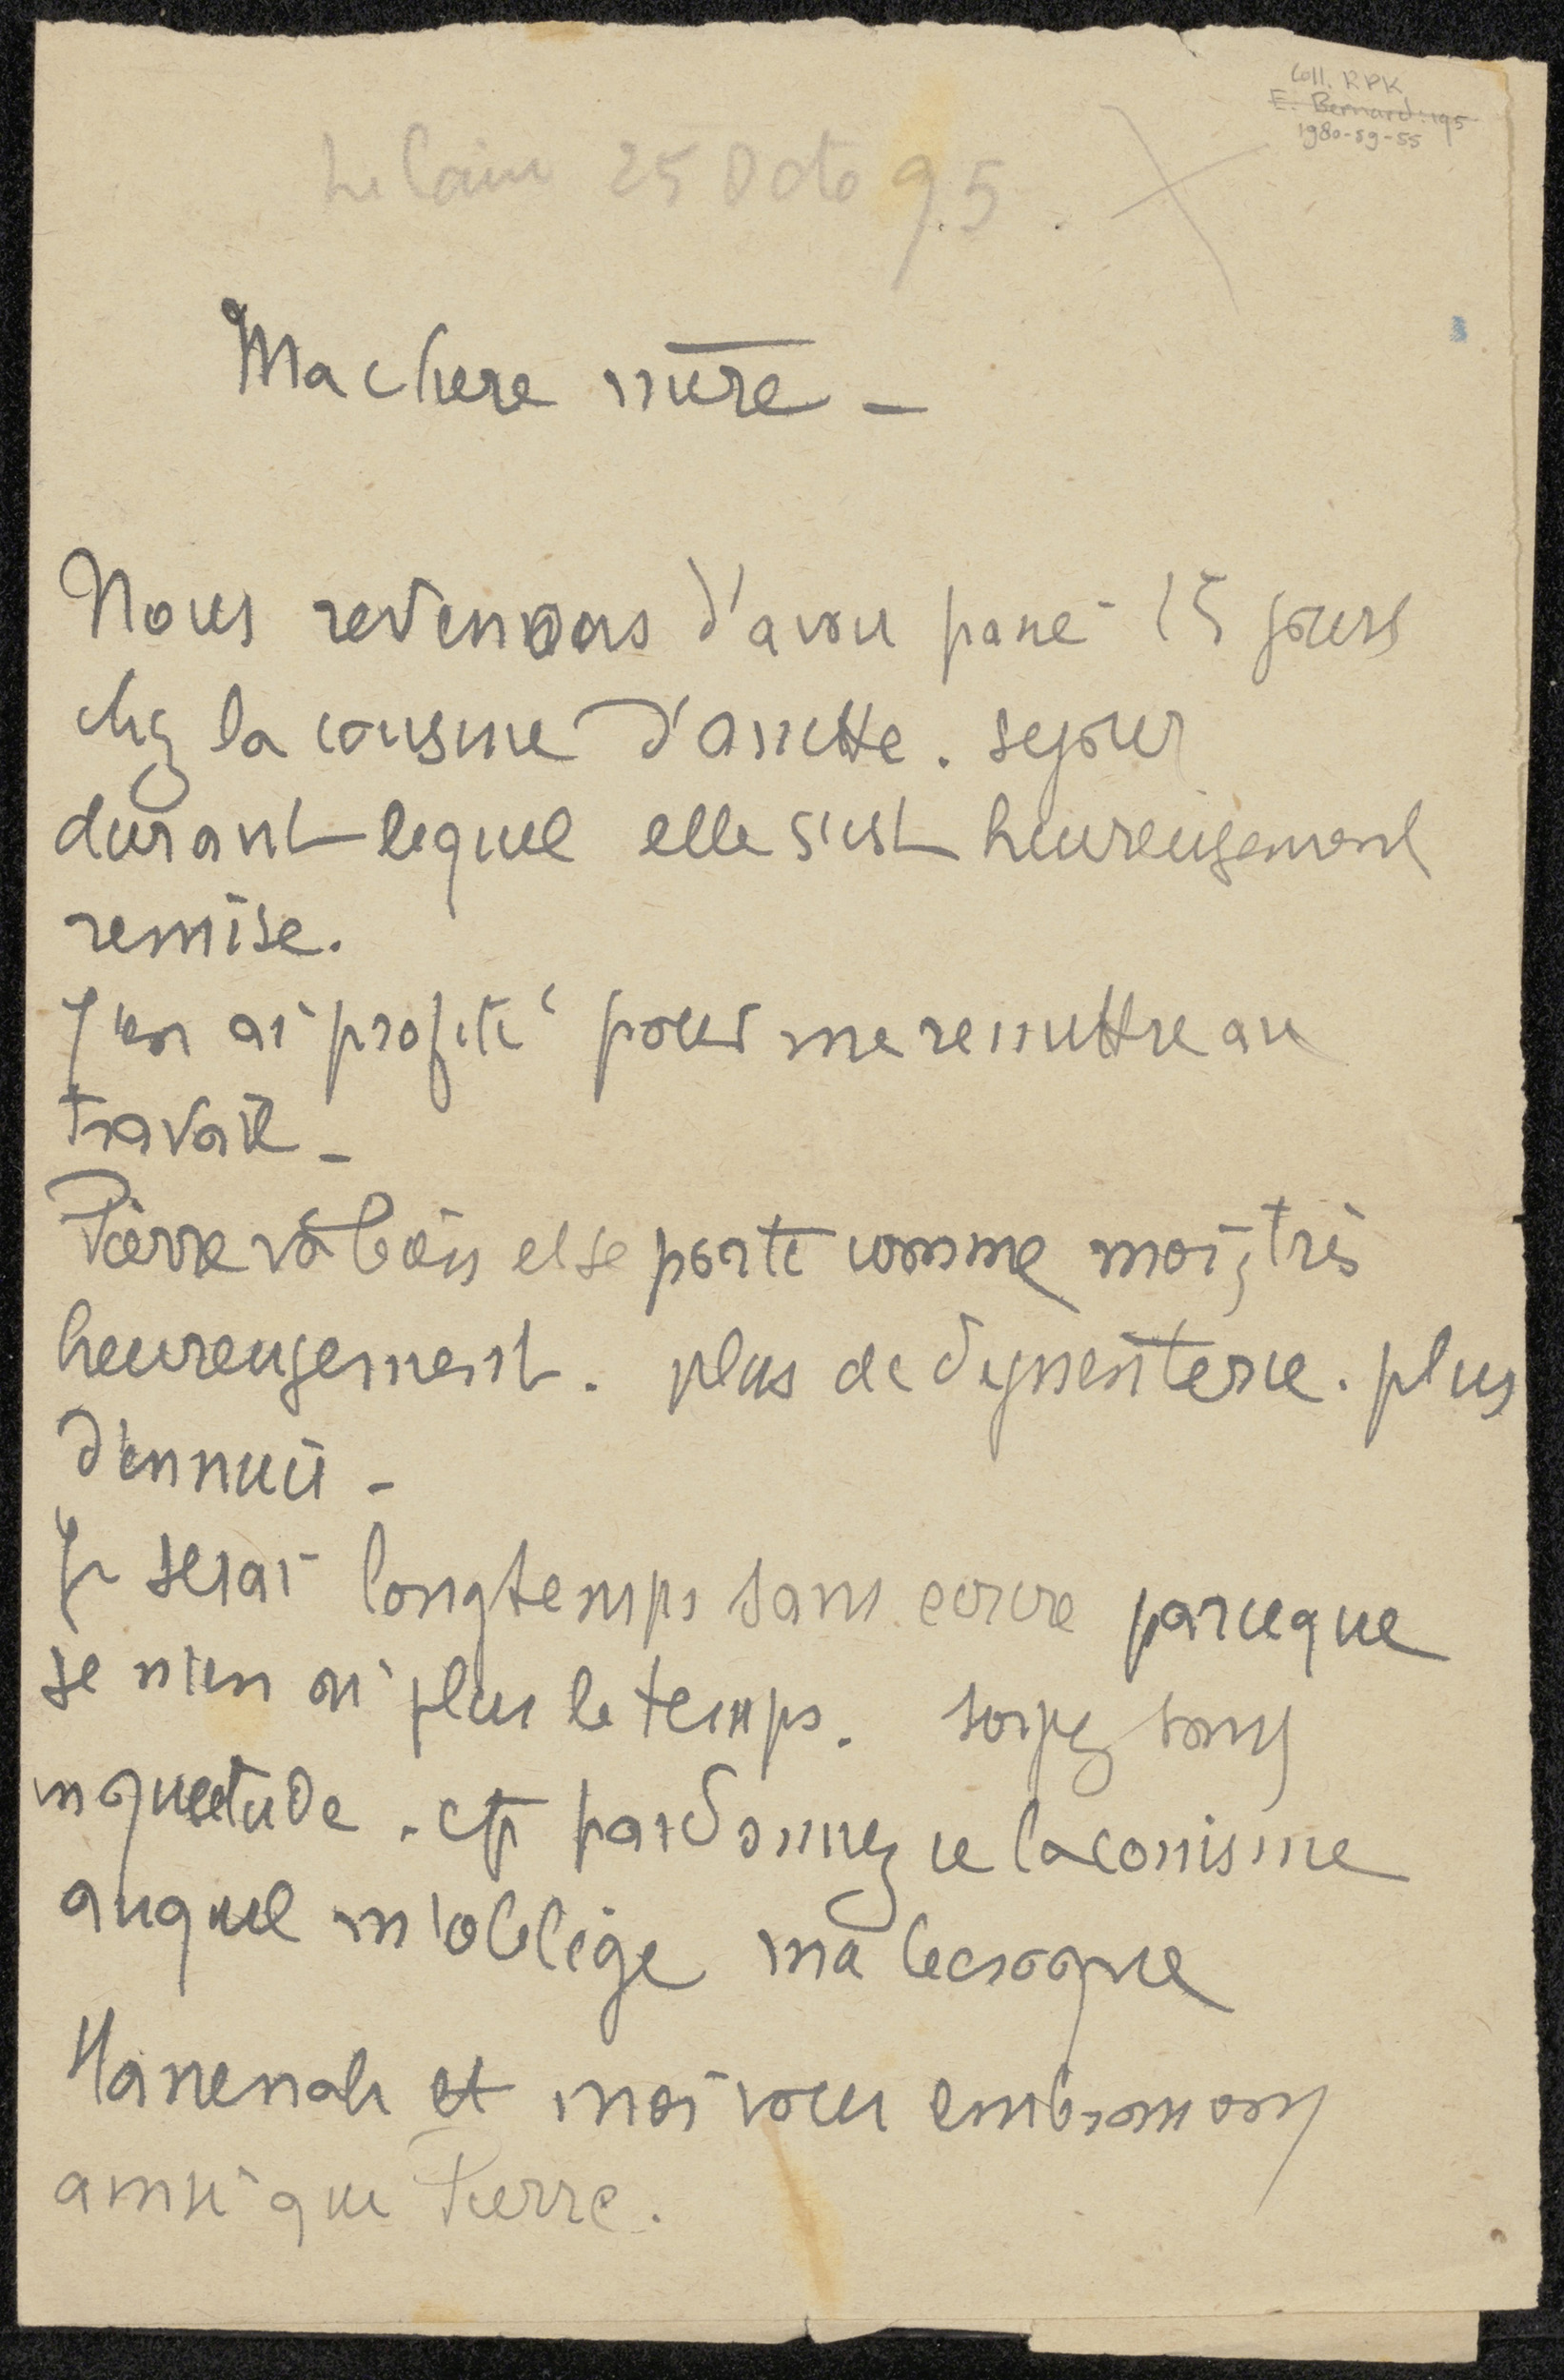 Coll. RPK
E. Bernard: 195
1980-59-55
Le Caire 25 Octo 95.
Ma chere mère –
Nous revenons d'avoir passé 15 jours
chez la cousine d'anette. sejour
durant lequel elle s'est heureusement
remise.
J'en ai profité pour me remettre au
travail –
Pierre va bien et se porte comme moi, très
heureusement. plus de dyssenterie. plus
d'ennui –
Je serai longtemps sans ecrire parceque
je n'en ai plus le temps. soyez sans
inquietude. et pardonnez ce laconisme
auquel m'oblige ma besogne
Hanenah et moi vous embrassons
ainsi que Pierre.